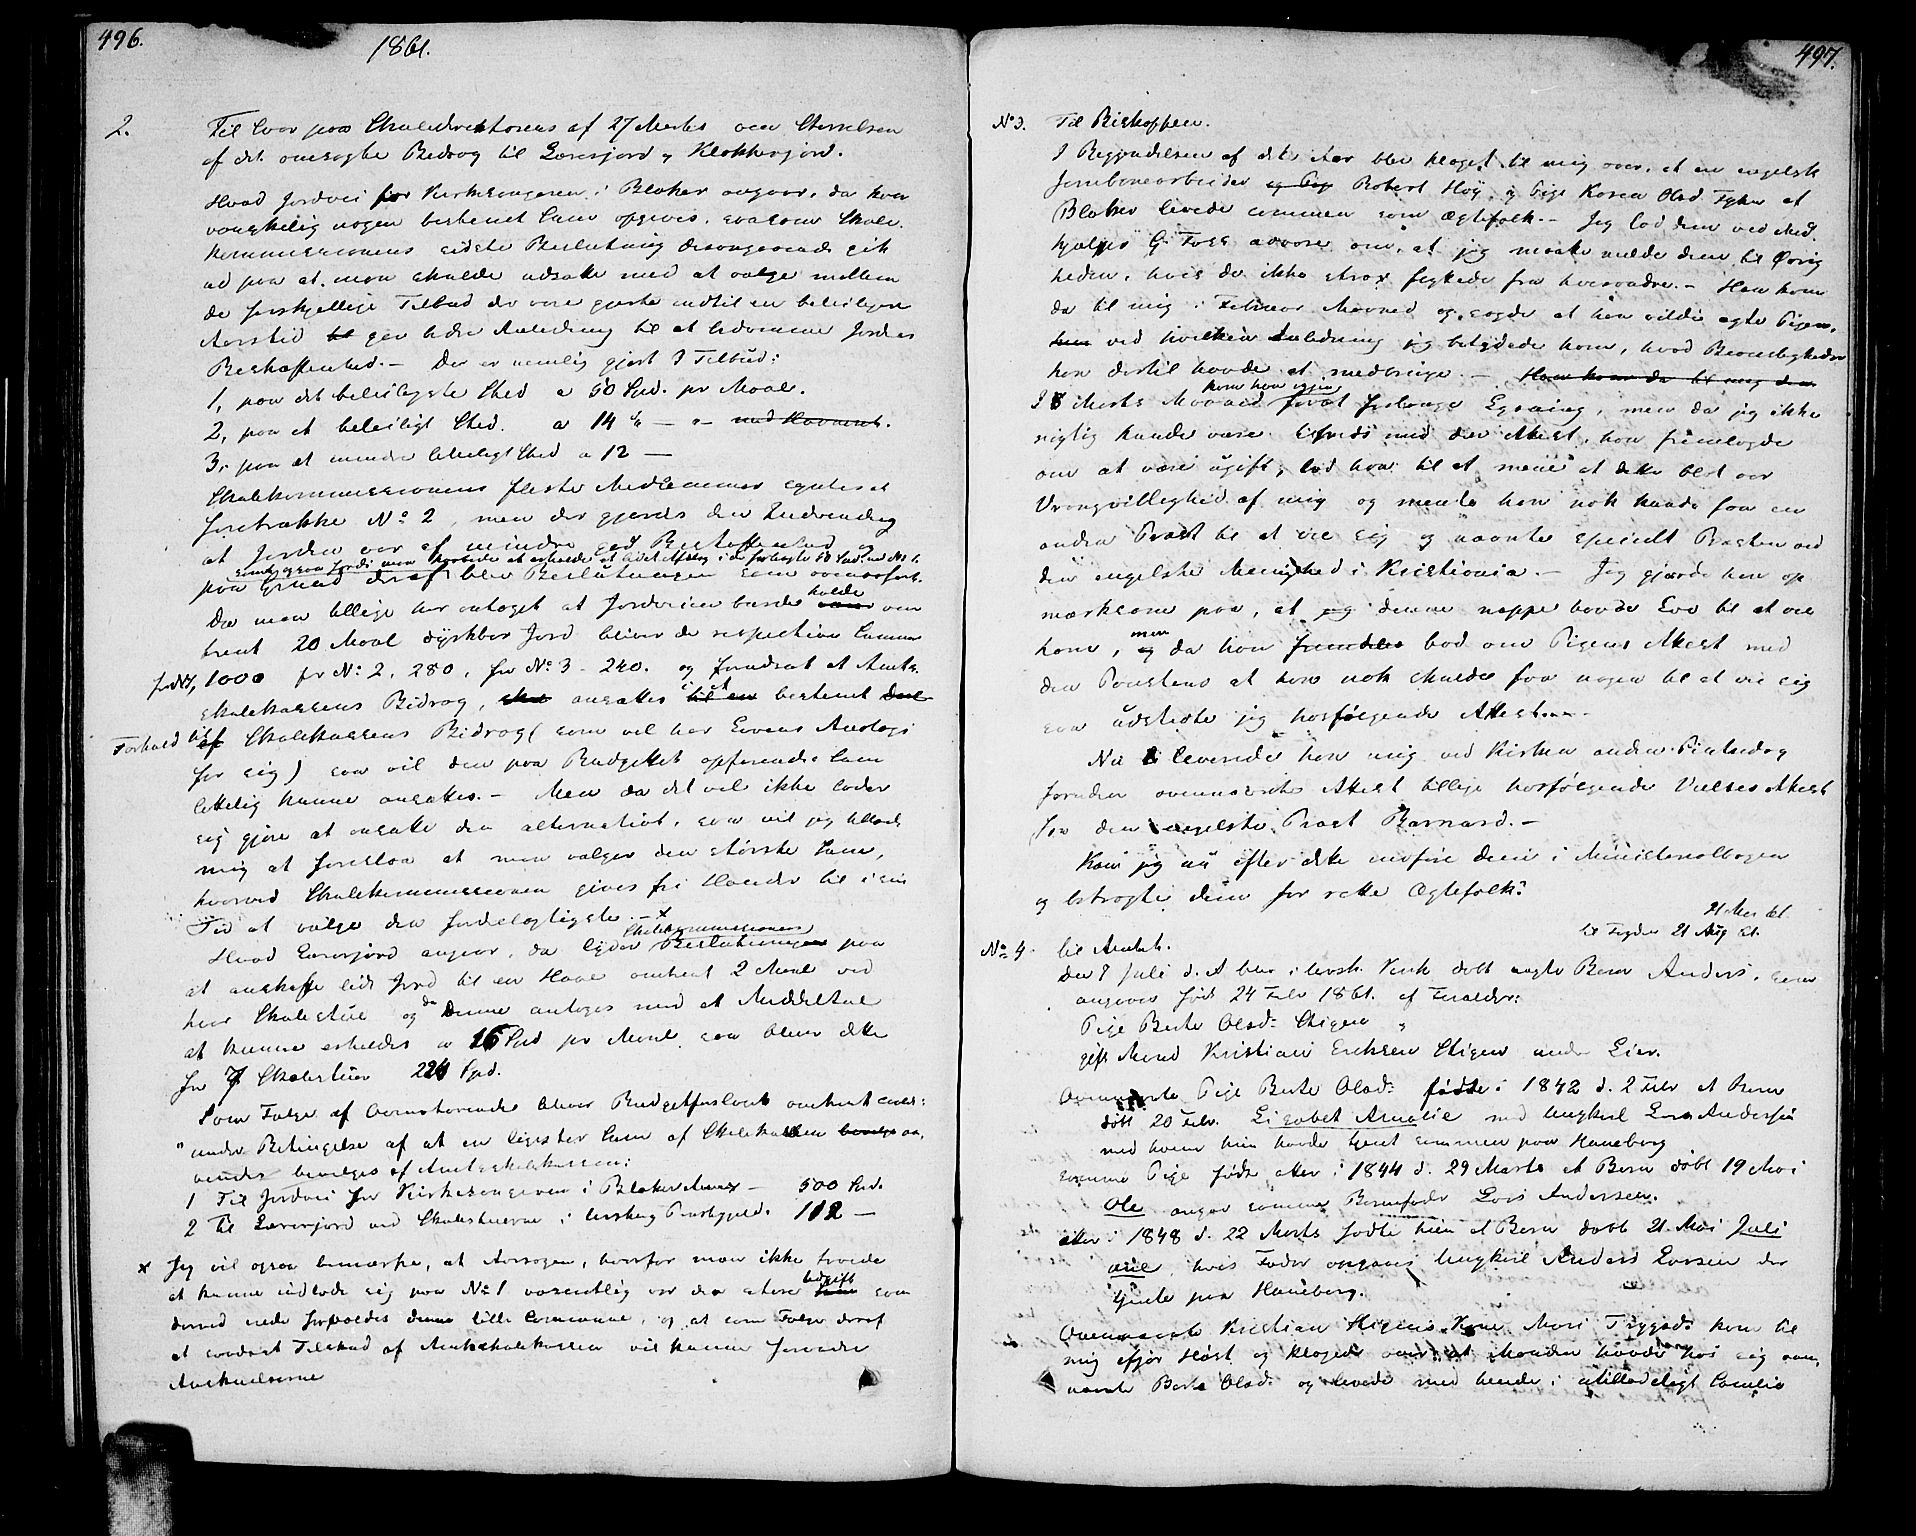 496.
1861.
2.
Til Svar paa Skoledirektionens af 27 Marts om Størrelsen
af det ansøgte Bidrag til Lærerjord og Klokkerjord.
Hvad Jordvei for Kirkesangeren i Blaker angaar, da kan
vanskelig nogen bestemt Sum opgives, saasom Skole
kommissionens sidste Beslutning desangaaende gik
ud paa at man skulde udsætte med at vælge mellem
de forskjellige Tilbud der vare gjorte indtil en beleiligere
Aarstid gav bedre Anledning til at bedømme Jordens
Beskaffenhed. — Der er nemlig gjort 3 Tilbud:
1, paa det beleiligste Sted a 50 Spd. pr Maal.
2, paa et beleiligt Sted. a 14 — " — med Havnene.
3. paa et mindre beleiligt Sted a 12 —
Skolekommissionens fleste Medlemmer syntes at
foretrække No 2, men der gjordes den Indvending
at Jorden var af mindre god Beskaffenhed og
paa Grund deraf blev Beslutningen som ovenanført.
Da man tillige har antaget at Jordveien burde holde om
trent 20 Maal dyrkbar Jord bliver de respective Summer
for No 1, 1000 for No 2, 280, for No 3 - 240. og forudsat at Amts
skolekassens Bidrag, ansættes i et bestemt
Forhold til Skolekassens Bidrag (som vel har Lovens Analogi
for sig) saa vil den paa Budgettet opførende Sum
lettelig kunne ansættes. — Men da det vel ikke lader
sig gjøre at ansætte den alternativt, saa vil jeg tillade
mig at foreslaa at man vælger den største Sum,
hvorved Skolekommissionen gives fri Hænder til i sin
Tid at vælge den fordelagtigste. — x
Hvad Lærerjord angaar, da lyder Skolekommissionens Beslutning paa
at anskaffe lidt Jord til en Have omtrent 2 Maal ved
hver Skolestue og da Denne antages med et Middeltal
at kunne erholdes a 16 Spd pr Maal, saa bliver dette
for 7 Skolestuer 224 Spd.
Som Følge af Ovenstaaende bliver Budgetforslaget omtrent saa:
" under Betingelse af at en ligestor Sum af Skolekassen an,
vendes bevilges af Amtsskolekassen:
1 Til Jordvei for Kirkesangeren i Blaker Annex — 500 Spd.
2 Til Lærerjord ved Skolestuerne i Urskoug Præstegjeld. 112 —
x Jeg vil ogsaa bemærke, at Aarsagen, hvorfor man ikke troede
at kunne indlade sig paa No 1 væsentlig var den store Udgift som
derved vilde forvoldes denne lille Commune, og at som Følge deraf
et saadant Tilskud af Amtsskolekassen vil kunne forandre
Anskuelserne
497.
No 3. Til Biskoppen.
I Begyndelsen af dette Aar blev klaget til mig over, at en engelsk
Jernbanearbeider og Pige Robert Høy, og Pige Karen Olsd. Fyken af
Blaker levede sammen som Ægtefolk. — Jeg lod dem ved Med
hjælper G. Foss advare om, at jeg maatte melde dem til Øvrig
heden, hvis de ikke strax flyttede fra hverandre. — Han kom
da til mig i Februar Maaned og sagde at han vilde ægte Pigen,
ved hvilken Anledning jeg betydede ham, hvad Beviisligheder
han dertil havde at medbringe. — Han kom da til mig den
I Marts Maaned kom han igjen for at forlange Lysning, men da jeg ikke
rigtig kunde være tilfreds med den Attest, han fremlagde
om at være ugift, lod han til at mene at dette blot var
Vrangvillighed af mig og mente han nok kunde faa en
anden Præst til at vie sig og nævnte specielt Præsten ved
den engelske Menighed i Kristiania. — Jeg gjorde ham op
mærksom paa, at denne neppe havde Lov til at vie
ham, men da han bad om Pigens Attest med
den Paastand at han nok skulde faa nogen til at vie sig
saa udstedte jeg hosfølgende Attest. —
Nu leverede han mig ved Kirken anden Pintsedag
foruden ovennævnte Attest tillige hosfølgende Vielses Attest
fra den engelske Præst Barnard. —
Kan jeg nu efter dette indføre dem i Ministerialbogen
og betragte dem for rette Ægtefolk?
21 Mai
til Fogden 21 Aug
No 4. til Amtet.
Den 7 Juli d. A blev i Ursk. Kirk døbt uægte Barn Anders, som
angives født 24 Febr 1861. af Forældre:
Pige Berte Olsd: Stigen
gift Mand Kristian Eriksen Stigen under Lier.
Ovennævnte Pige Berte Olsd: fødte i 1842 d. 2 Febr et Barn
døbt 20 Febr. Lisabet Amalie med Ungkarl Lars Andersen
med hvem hun havde tjent sammen paa Haneborg
samme Pige fødte atter i 1844 d. 29 Marts et Barn døbt 19 Mai
Ole angav samme Barnefader Lars Andersen.
atter i 1848 d. 22 Marts fødte hun et Barn døbt 21 Mai Juli
ane, hvis Fader opgaves Ungkarl Anders Larsen der
tjente paa Haneborg.
Ovennævnte Kristian Stigens Kone Mari Tryggsd. kom til
mig ifjor Høst og klagede over at Manden havde hos sig oven,
nævnte Berte Olsd. og levede med hende i utilladeligt Samliv